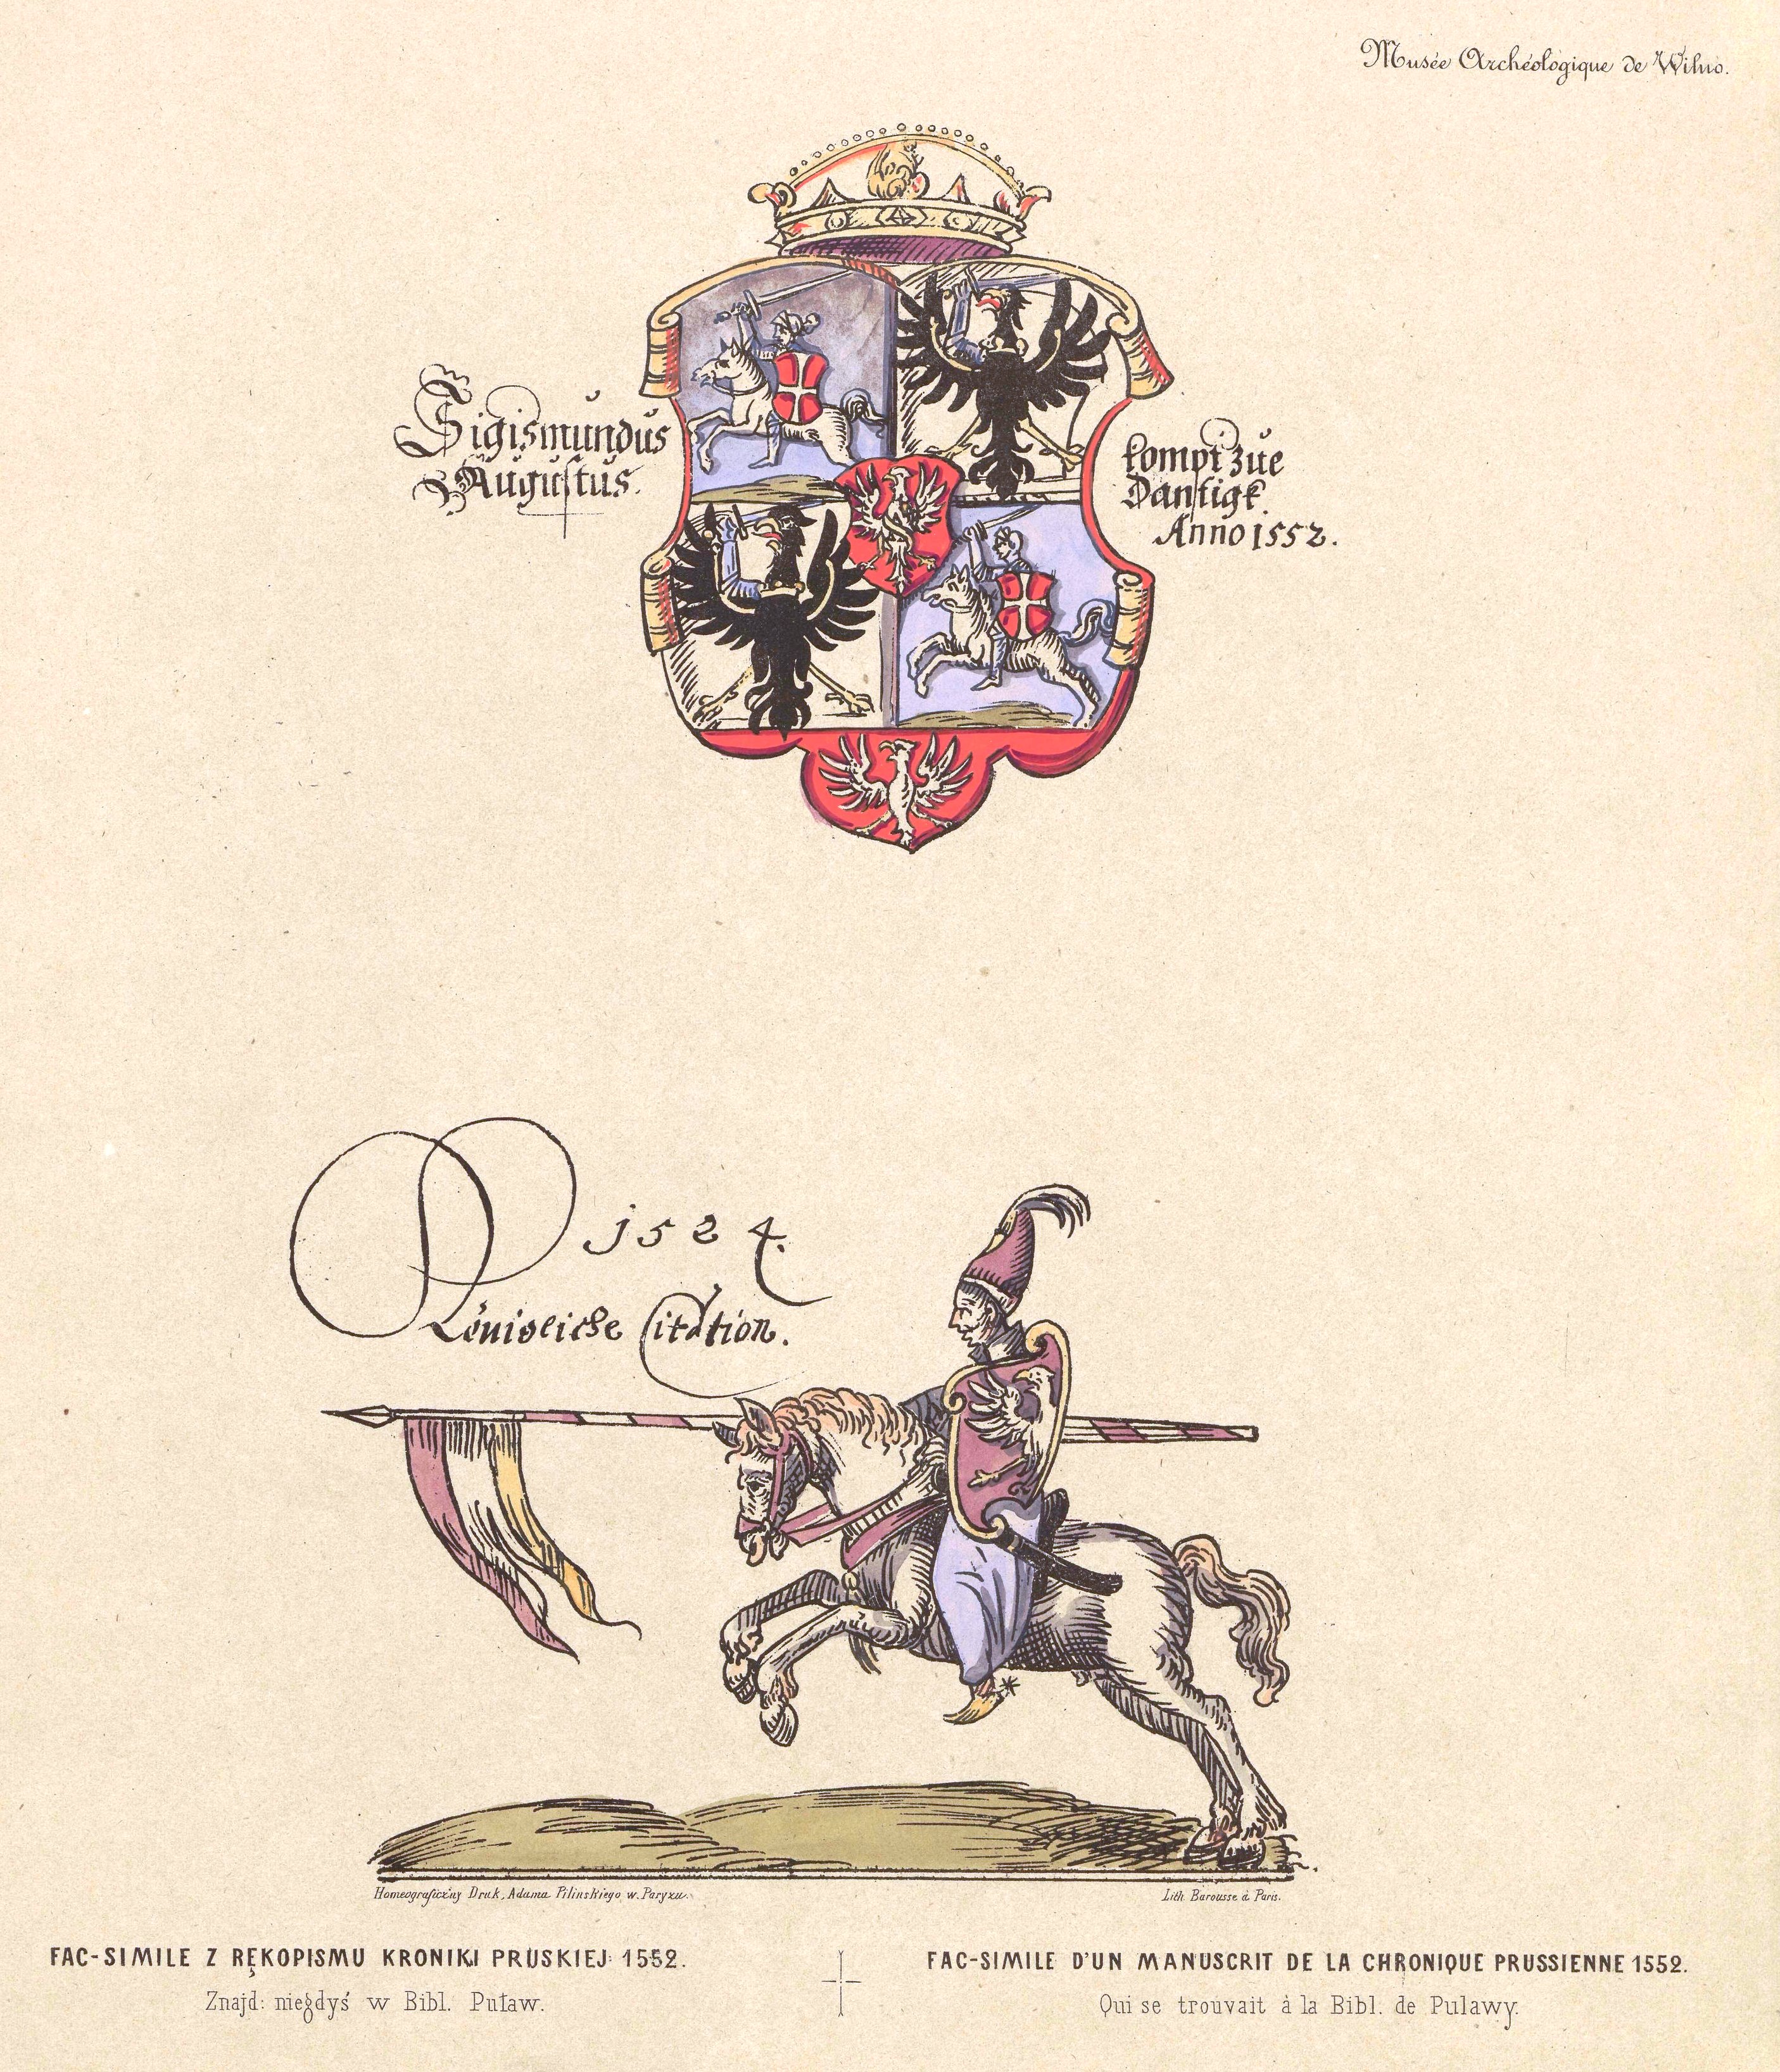 Musée Archéologique de Wilno.
Sigismundus
Augustus.
kompt zue
Dantigk
Anno 1552.
1524.
Königliche Citation.
Homeograficzny Druk, Adama Pilinskiego w. Paryzu.
Lith. Barousse à Paris.
FAC-SIMILE Z RĘKOPISMU KRONIKI PRUSKIEJ: 1552.
Znajd: niegdyś w Bibl. Puław.
FAC-SIMILE D'UN MANUSCRIT DE LA CHRONIQUE PRUSSIENNE 1552.
Qui se trouvait à la Bibl. de Pulawy.